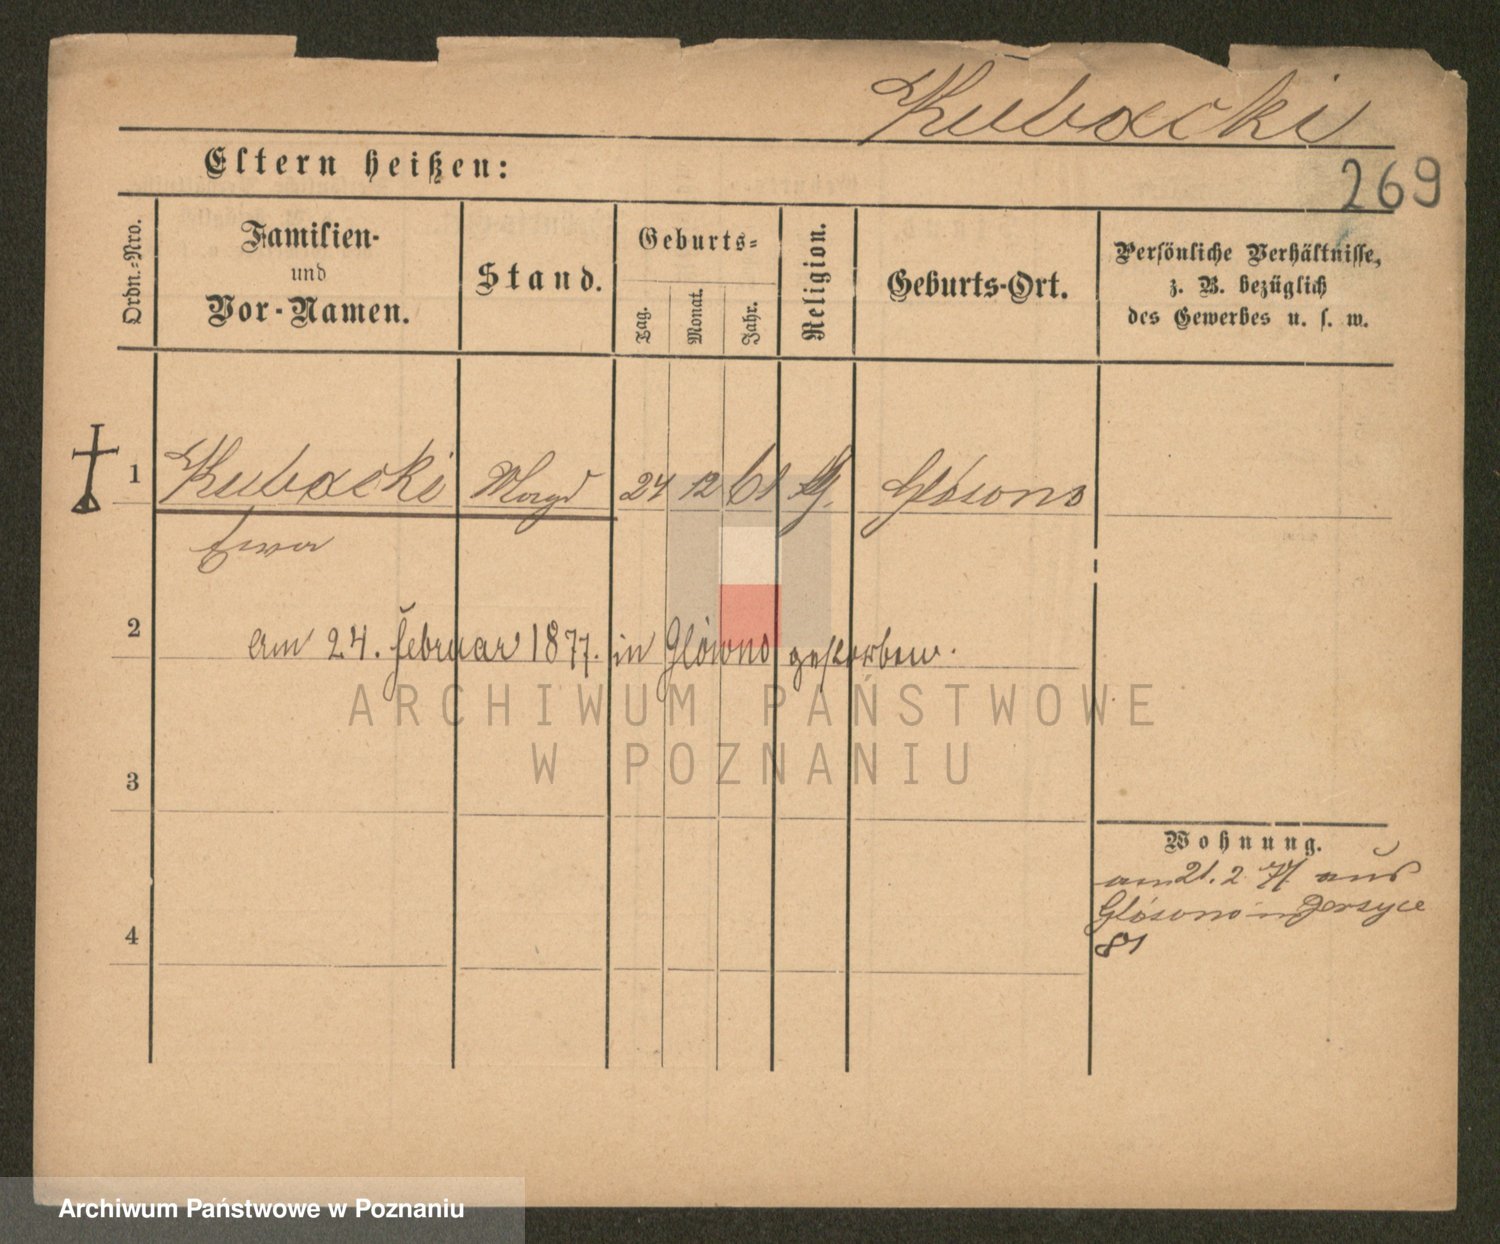 Kubacki
Eltern heißen:
269
Ordn.-Nro.
Familien-
und
Vor-Namen.
Stand.
Geburts-
Tag.
Monat.
Jahr.
Religion.
Geburts-Ort.
Persönliche Verhältnisse,
z. B. bezüglich
des Gewerbes u. s. w.
1 Kubacki Magd 24 12 61 Główno
Ewa
2
am 24. Februar 1877. in Główno gestorben.
ARCHIWUM PAŃSTWOWE
W POZNANIU
3
Wohnung.
am 21. 2 77 aus
Główno in Jersyce
81
4
Archiwum Państwowe w Poznaniu